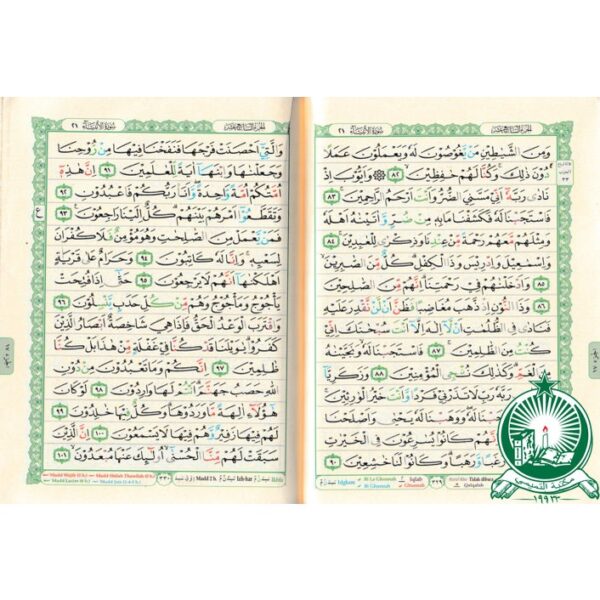 الجزء السابع عشر
سورة الأنبياء ٢١
وَمِنَ الشَّيٰطِينِ مَنْ يَغُوصُونَ لَهُ وَيَعْمَلُونَ عَمَلًا
دُونَ ذٰلِكَ وَكُنَّا لَهُمْ حٰفِظِينَ ٨٢ ۞ وَأَيُّوبَ إِذْ
نَادٰى رَبَّهُ أَنِّي مَسَّنِيَ الضُّرُّ وَأَنْتَ أَرْحَمُ الرَّاحِمِينَ ٨٣
فَاسْتَجَبْنَا لَهُ فَكَشَفْنَا مَا بِهِ مِنْ ضُرٍّ وَآتَيْنٰهُ أَهْلَهُ
وَمِثْلَهُمْ مَعَهُمْ رَحْمَةً مِنْ عِنْدِنَا وَذِكْرٰى لِلْعٰبِدِينَ ٨٤
وَإِسْمٰعِيلَ وَإِدْرِيسَ وَذَا الْكِفْلِ كُلٌّ مِنَ الصّٰبِرِينَ ٨٥
وَأَدْخَلْنٰهُمْ فِي رَحْمَتِنَا إِنَّهُمْ مِنَ الصّٰلِحِينَ ٨٦
وَذَا النُّونِ إِذْ ذَهَبَ مُغَاضِبًا فَظَنَّ أَنْ لَنْ نَقْدِرَ عَلَيْهِ
فَنَادٰى فِي الظُّلُمٰتِ أَنْ لَا إِلٰهَ إِلَّا أَنْتَ سُبْحٰنَكَ إِنِّي
كُنْتُ مِنَ الظّٰلِمِينَ ٨٧ فَاسْتَجَبْنَا لَهُ وَنَجَّيْنٰهُ
مِنَ الْغَمِّ وَكَذٰلِكَ نُنْجِي الْمُؤْمِنِينَ ٨٨ وَزَكَرِيَّا
رَبَّهُ رَبِّ لَا تَذَرْنِي فَرْدًا وَأَنْتَ خَيْرُ الْوٰرِثِينَ
لَهُ وَوَهَبْنَا لَهُ يَحْيٰى وَأَصْلَحْنَا
إِنَّهُمْ كَانُوا يُسٰرِعُونَ فِي الْخَيْرٰتِ
رَغَبًا وَرَهَبًا وَكَانُوا لَنَا خٰشِعِينَ ٩٠
٣٢٩
Idgham
Bi La Ghunnah
Bi Ghunnah
Iqlab
Ghunnah
Qalqalah
الجزء السابع عشر
سورة الأنبياء ٢١
وَالَّتِي أَحْصَنَتْ فَرْجَهَا فَنَفَخْنَا فِيهَا مِنْ رُوحِنَا
وَجَعَلْنٰهَا وَابْنَهَا آيَةً لِلْعٰلَمِينَ ٩١ إِنَّ هٰذِهِ
أُمَّتُكُمْ أُمَّةً وٰحِدَةً وَأَنَا رَبُّكُمْ فَاعْبُدُونِ ٩٢
وَتَقَطَّعُوا أَمْرَهُمْ بَيْنَهُمْ كُلٌّ إِلَيْنَا رٰجِعُونَ ٩٣
فَمَنْ يَعْمَلْ مِنَ الصّٰلِحٰتِ وَهُوَ مُؤْمِنٌ فَلَا كُفْرَانَ
لِسَعْيِهِ وَإِنَّا لَهُ كٰتِبُونَ ٩٤ وَحَرٰمٌ عَلٰى قَرْيَةٍ
أَهْلَكْنٰهَا أَنَّهُمْ لَا يَرْجِعُونَ ٩٥ حَتّٰى إِذَا فُتِحَتْ
يَأْجُوجُ وَمَأْجُوجُ وَهُمْ مِنْ كُلِّ حَدَبٍ يَنْسِلُونَ ٩٦
وَاقْتَرَبَ الْوَعْدُ الْحَقُّ فَإِذَا هِيَ شٰخِصَةٌ أَبْصٰرُ الَّذِينَ
كَفَرُوا يٰوَيْلَنَا قَدْ كُنَّا فِي غَفْلَةٍ مِنْ هٰذَا بَلْ كُنَّا
ظٰلِمِينَ ٩٧ إِنَّكُمْ وَمَا تَعْبُدُونَ مِنْ دُونِ
اللّٰهِ حَصَبُ جَهَنَّمَ أَنْتُمْ لَهَا وٰرِدُونَ ٩٨ لَوْ كَانَ
هٰؤُلَاءِ آلِهَةً مَا وَرَدُوهَا وَكُلٌّ فِيهَا خٰلِدُونَ ٩٩
لَهُمْ فِيهَا زَفِيرٌ وَهُمْ فِيهَا لَا يَسْمَعُونَ ١٠٠ إِنَّ الَّذِينَ
سَبَقَتْ لَهُمْ مِنَّا الْحُسْنٰى أُولٰئِكَ عَنْهَا مُبْعَدُونَ ١٠١
٣٣٠
Madd 2 h.
Izh-har
Ikhfa